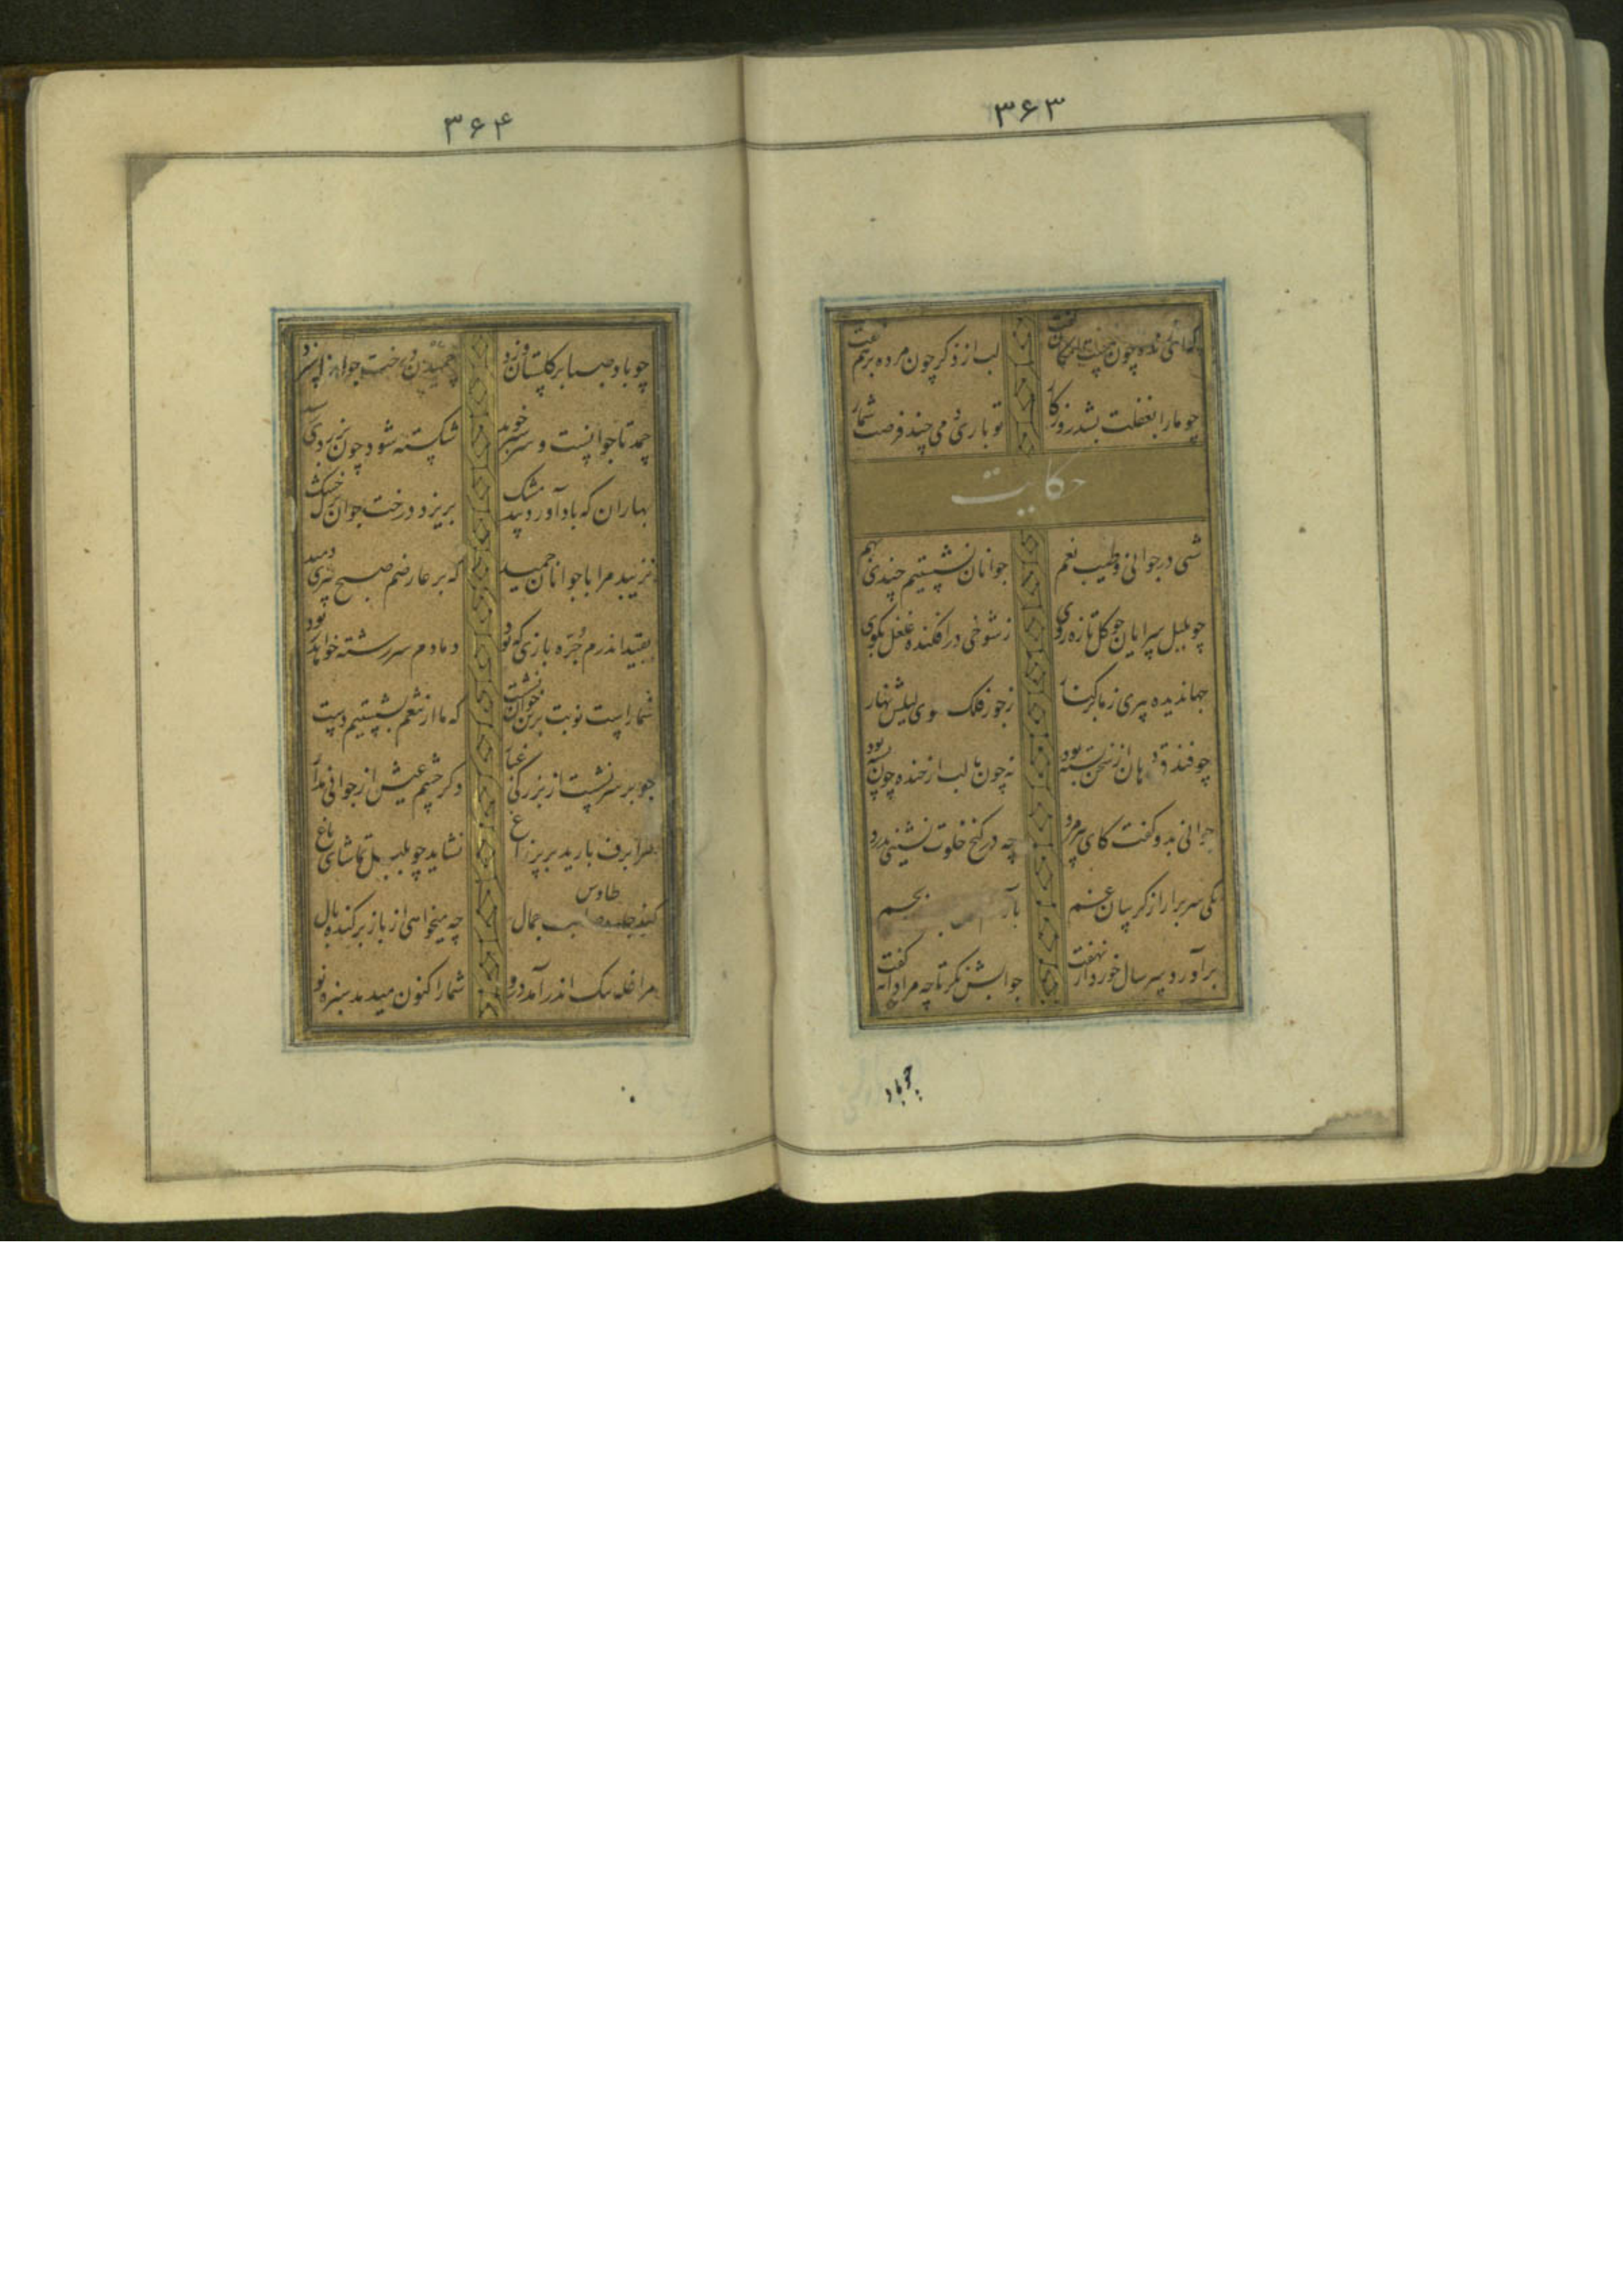 ۳۶۳
که ای زنده چون
لب از ذکر چون مرده بر هم نخفت
چو ما را بغفلت بشد روزگار
تو باری دمی چند فرصت شمار
حکایت
شبی در جوانی و طیب نعم
جوانان نشستیم چندی بهم
چو بلبل سرایان چو گل تازه روی
ز شوخی در افکنده غلغل بکوی
جهاندیده پیری ز ما بر کنار
ز جور فلک موی لیلش نهار
چو فندق دهان از سخن بسته بود
نه چون ما لب از خنده چون پسته بود
جوانی بدو گفت کای پیرمرد
چه در کنج خلوت نشینی بدرد
یکی سر برار از گریبان غم
برآورد پیر سال خورد از نهفت
جوابش نگر تا چه مردانه گفت
چو باد
۳۶۴
چو باد صبا بر گلستان وزد
چمیدن درخت جوان را سزد
چمد تا جوانست و سرسبز خوید
شکسته شود چون بزردی رسید
بهاران که باد آورد بید مشک
بریزد درخت جوان برگ خشک
نزیبد مرا با جوانان چمید
که بر عارضم صبح پیری دمید
بقید اندرم جره بازی که بود
دمادم سر رشته خواهد ربود
شما راست نوبت برین خوان نشست
که ما از تنعم بشستیم دست
چو بر سر نشست از بزرگی غبار
دگر چشم عیش از جوانی مدار
مرا برف بارید بر پر زاغ
نشاید چو بلبل تماشای باغ
کند جلوه طاوس صاحب جمال
چه میخواهی از باز برکنده بال
مرا غله تنگ اندر آمد درو
شما را کنون میدمد سبزه نو